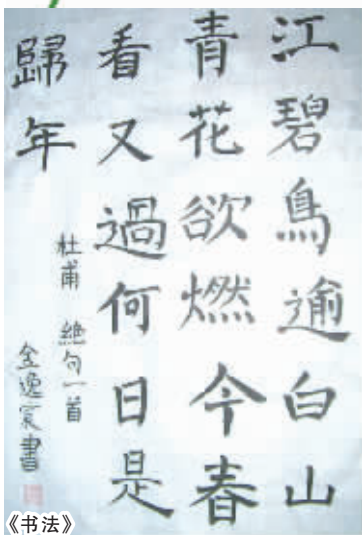 江碧鳥逾白山
青花欲燃今春
看又過何日是
歸年
杜甫 絶句一首
金逸宸書
《书法》